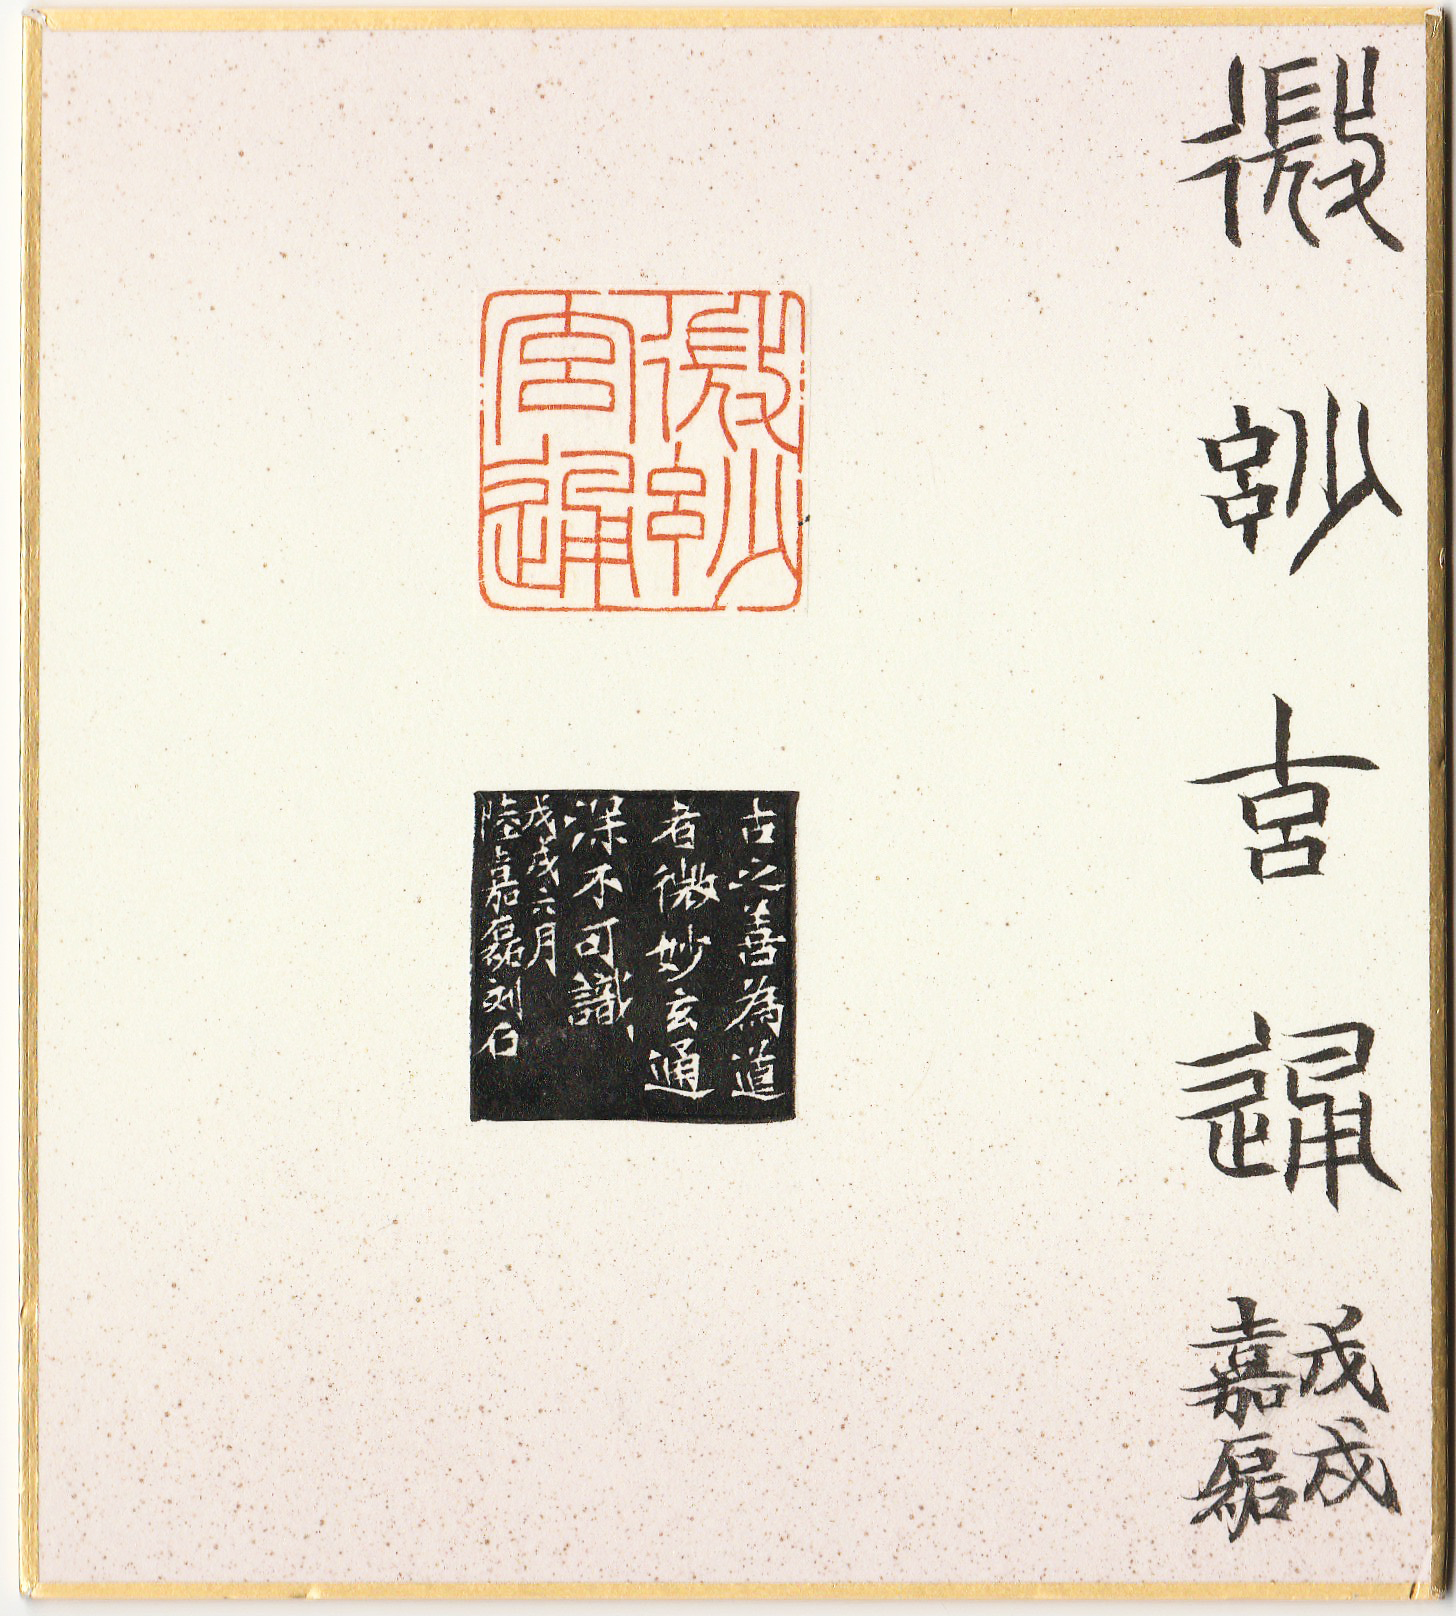 微玅玄通
戊戌
嘉磊
微玅
玄通
古之善為道
者微妙玄通
深不可識
戊戌六月
陸嘉磊刻石